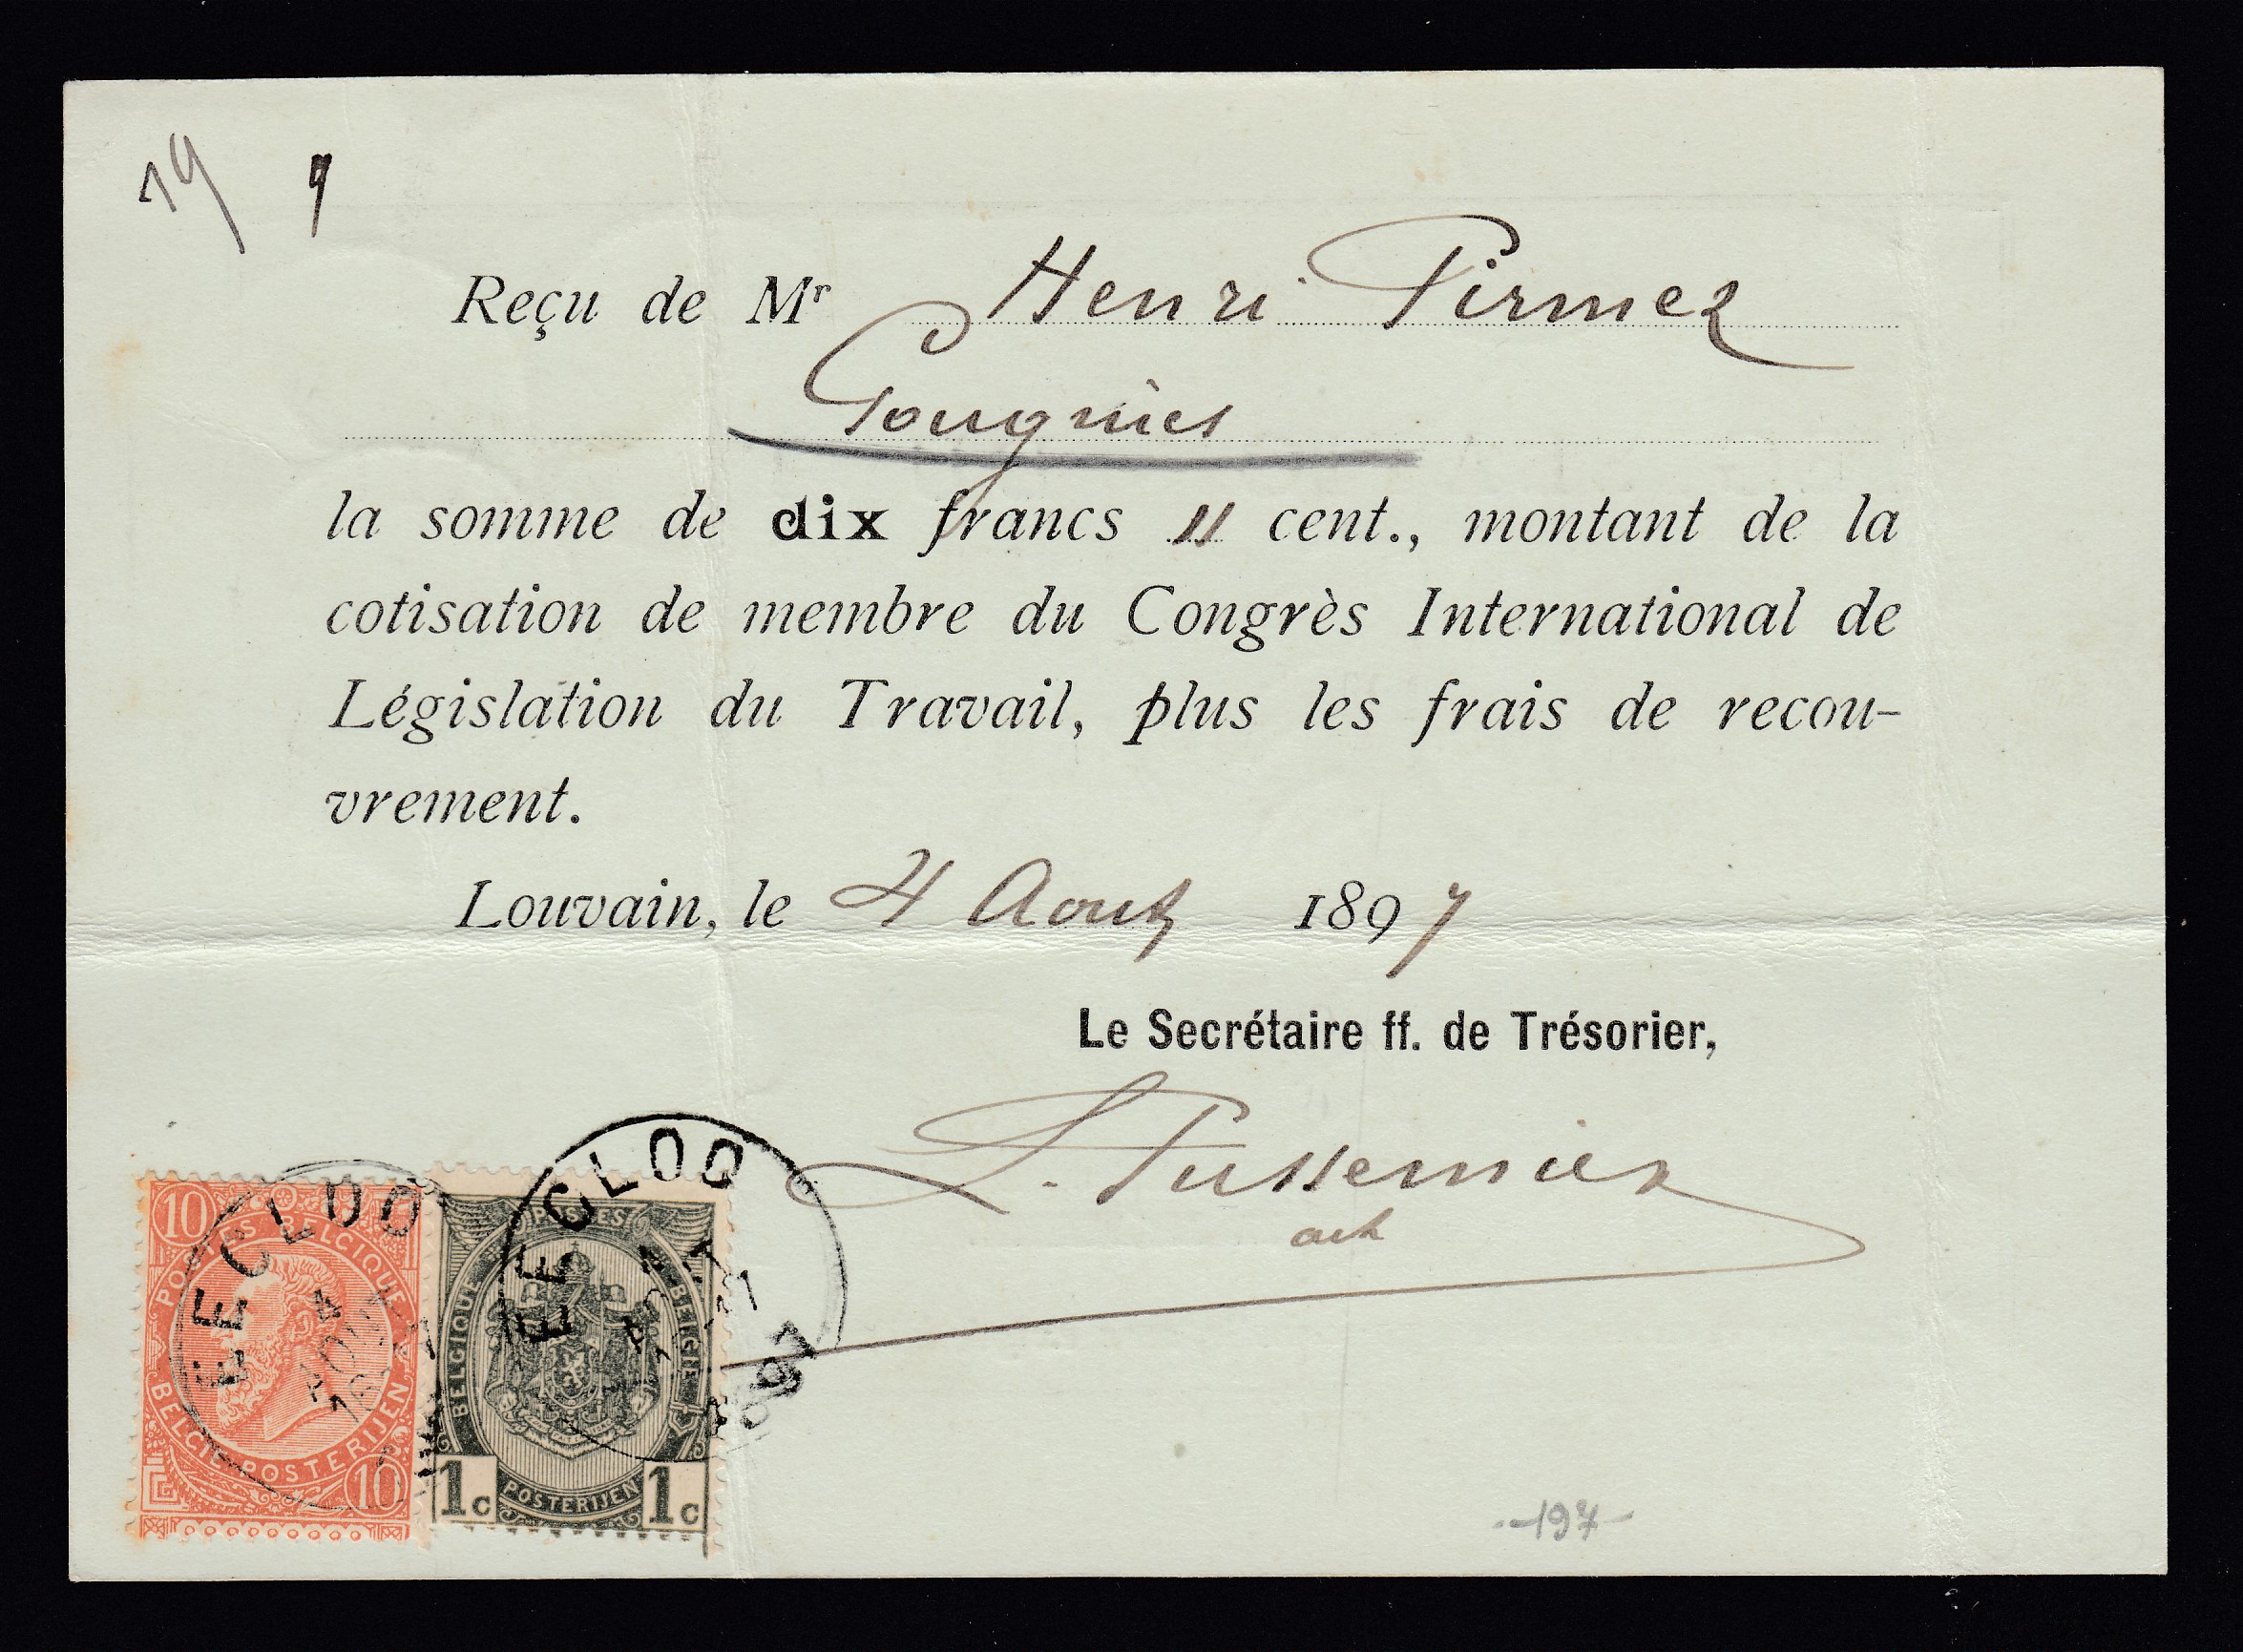 19 9
Reçu de Mr Henri Pirmez
Gougnies
la somme de dix francs 11 cent., montant de la
cotisation de membre du Congrès International de
Législation du Travail, plus les frais de recou-
vrement.
Louvain, le 4 Aout 1897
Le Secrétaire ff. de Trésorier,
10
POSTES BELGIQUE
BELGIE POSTERIJEN
10
EECLOO
4
AOUT
POSTES
BELGIQUE
BELGIE
POSTERIJEN
1c 1c
EECLOO
197